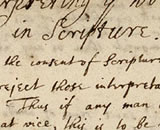 in Scripture.
the consent of Scripture
reject those interpreta
Thus if any man
at vice, this is to be